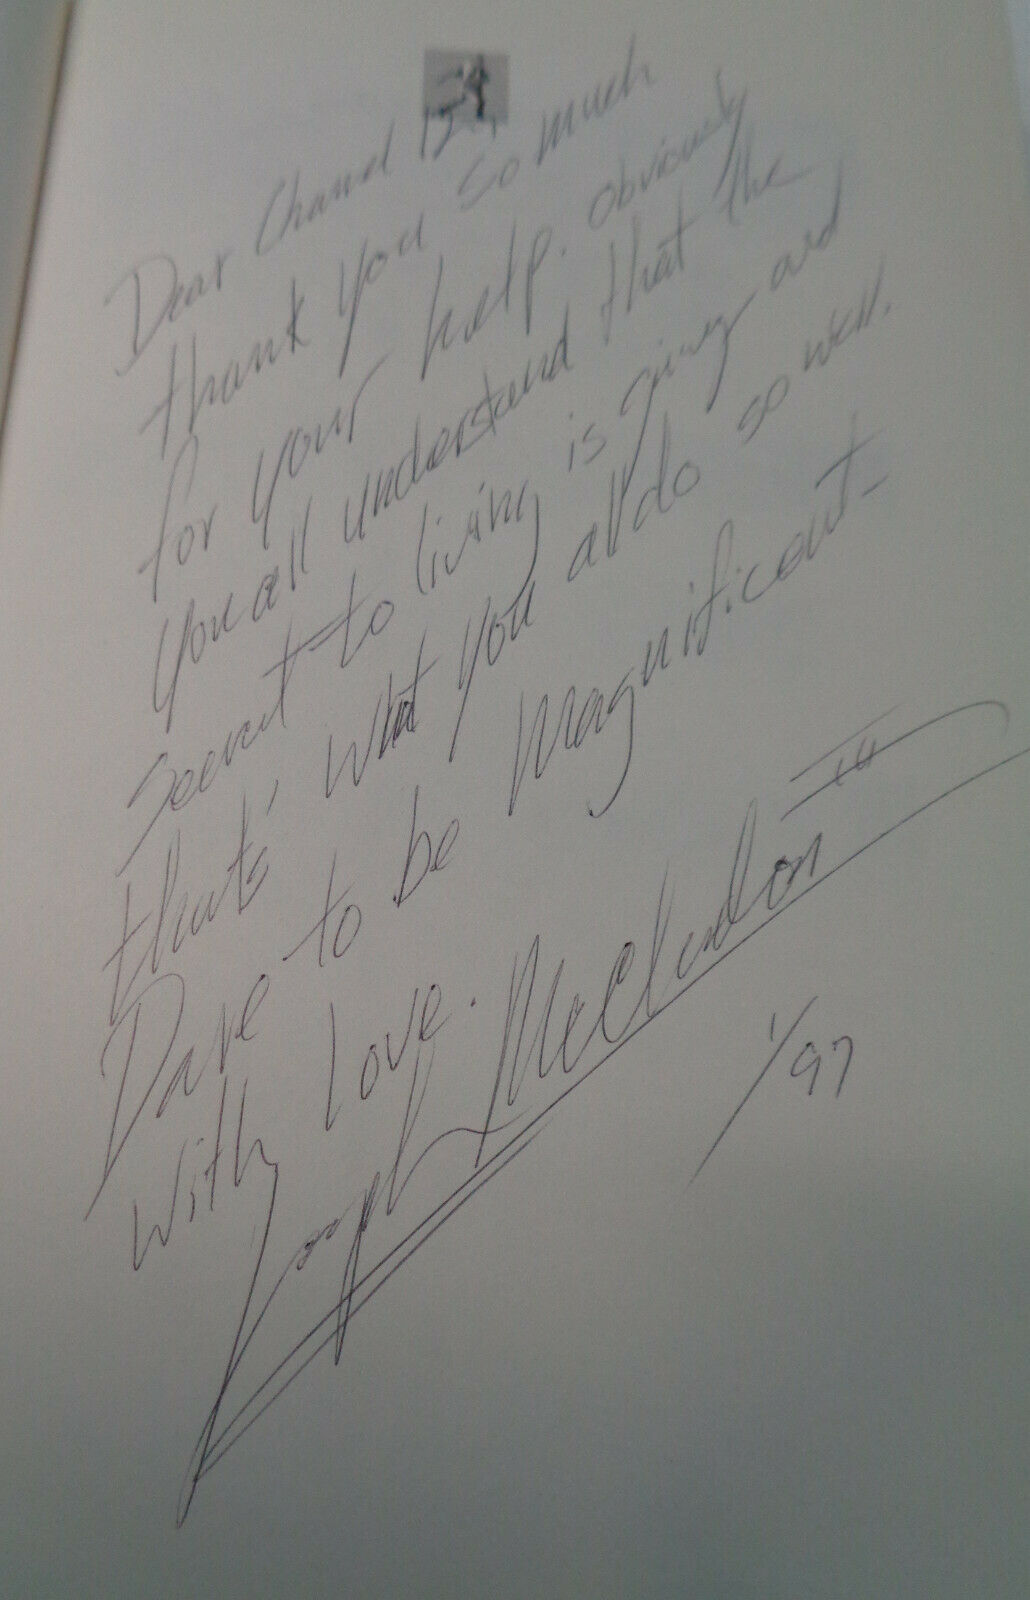 Dear Channel 12,
thank you so much
for your help. obviously
you all understand that the
secret to living is giving and
thats' what you all do so well.
Dare to be Magnificent-
with love.
McClendon III
1/97